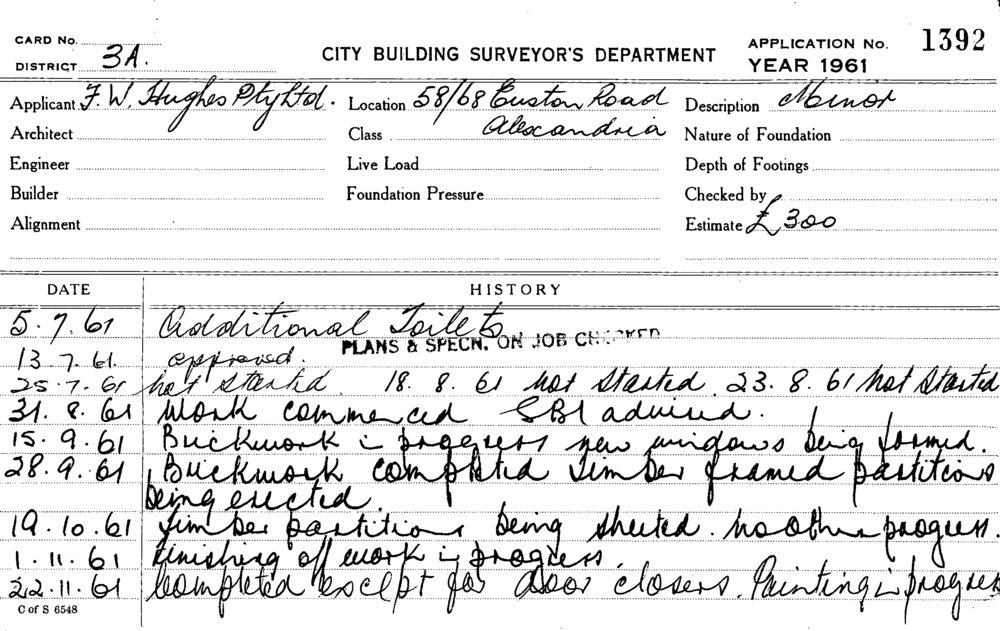 CARD No.
DISTRICT 3A.
CITY BUILDING SURVEYOR'S DEPARTMENT
APPLICATION No. 1392
YEAR 1961
Applicant F. W. Hughes Pty Ltd. Location 58/68 Euston Road Description Minor
Architect Class Alexandria Nature of Foundation
Engineer Live Load Depth of Footings
Builder Foundation Pressure Checked by
Alignment Estimate £300
DATE HISTORY
5.7.61 Additional Toilets
PLANS & SPECN. ON JOB CHECKED
13.7.61. approved.
25.7.61 not started 18.8.61 not started 23.8.61 not started
31.8.61 Work commenced SBI advised.
15.9.61 Brickwork i progress new windows being formed.
28.9.61 Brickwork completed timber framed partitions
being erected
19.10.61 Timber partitions being sheeted. no other progress.
1.11.61 Finishing off work i progress
22.11.61 Completed except for door closers. Painting i progress
C of S 6548